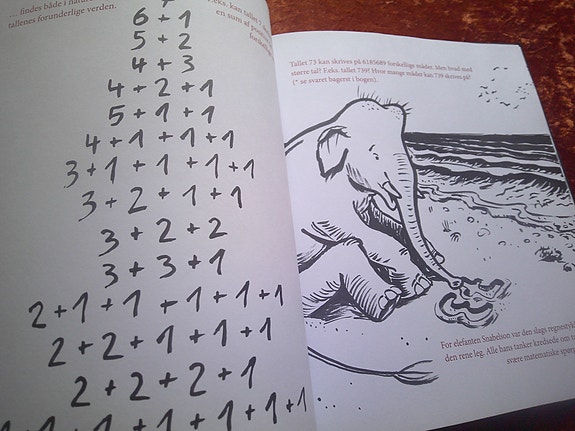 ... findes både i
tallenes forunderlige verden.
F.eks. kan tallet 7
en sum af
6+1
5+2
4+3
4+2+1
5+1+1
4+1+1+1
3+1+1+1+1
3+2+1+1
3+2+2
3+3+1
2+1+1+1+1+1
2+2+1+1+1
2+2+2+1
1+1+1+1+1+1+1
Tallet 73 kan skrives på 6185689 forskellige måder. Men hvad med
større tal? F.eks. tallet 739? Hvor mange måder kan 739 skrives på?
(* se svaret bagerst i bogen).
For elefanten Snabelson var den slags regnestyk
den rene leg. Alle hans tanker kredsede om
svære matematiske spørg